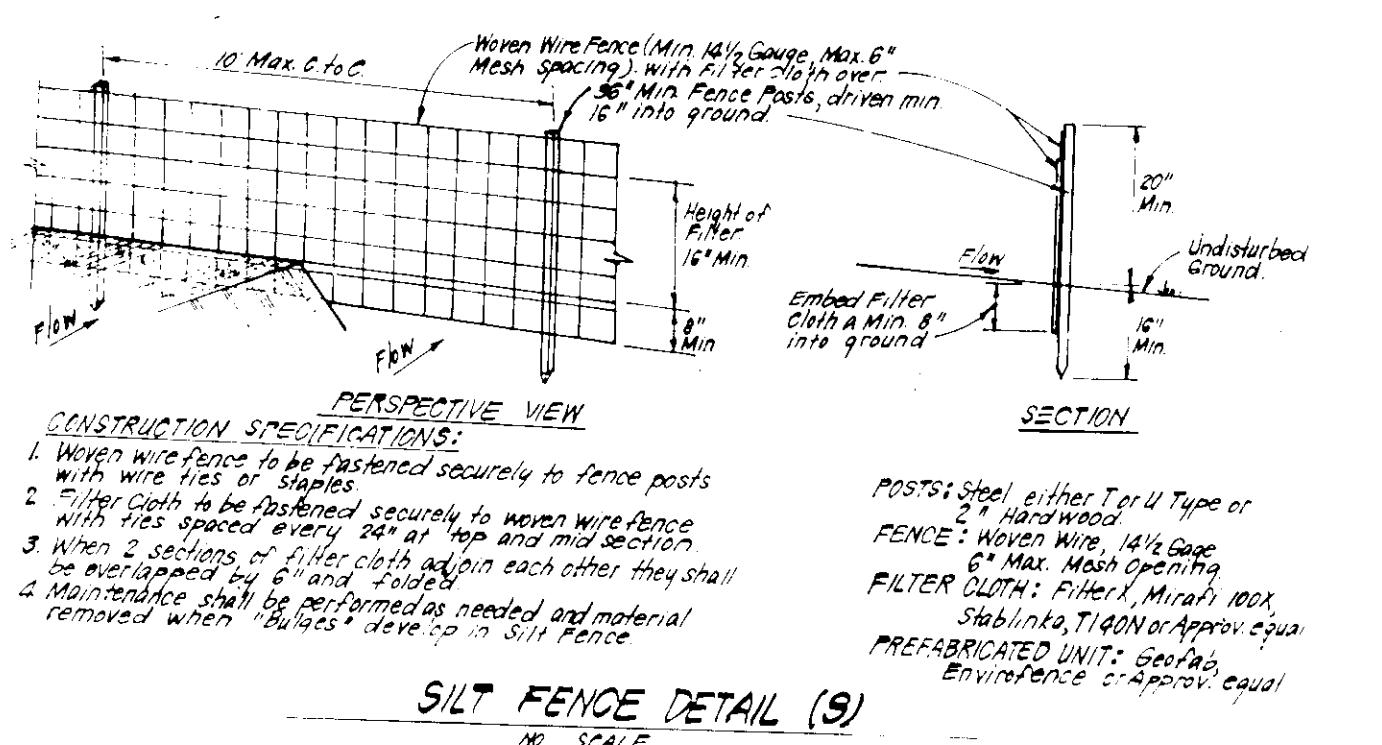 10' Max. C. to C.
Woven Wire Fence (Min. 14½ Gauge, Max. 6"
Mesh Spacing) with Filter Cloth over
36" Min. Fence Posts, driven min.
16" into ground.
Height of
Filter
16" Min.
8"
Min
Flow
Flow
PERSPECTIVE VIEW
20"
Min.
Flow
Undisturbed
Ground.
Embed Filter
Cloth A Min. 8"
into ground
16"
Min.
SECTION
CONSTRUCTION SPECIFICATIONS:
1. Woven wire fence to be fastened securely to fence posts
with wire ties or staples.
2 Filter Cloth to be fastened securely to woven wire fence
with ties spaced every 24" at top and mid section.
3. When 2 sections of filter cloth adjoin each other they shall
be overlapped by 6" and folded.
4 Maintenance shall be performed as needed and material
removed when "Bulges" develop in Silt Fence.
POSTS: Steel either T or U Type or
2" Hardwood.
FENCE: Woven Wire, 14½ Gage
6" Max. Mesh Opening
FILTER CLOTH: Filter X, Mirafi 100X,
Stablinka, T140N or Approv. equal
PREFABRICATED UNIT: Geofab,
Envirofence or Approv. equal
SILT FENCE DETAIL (S)
NO SCALE